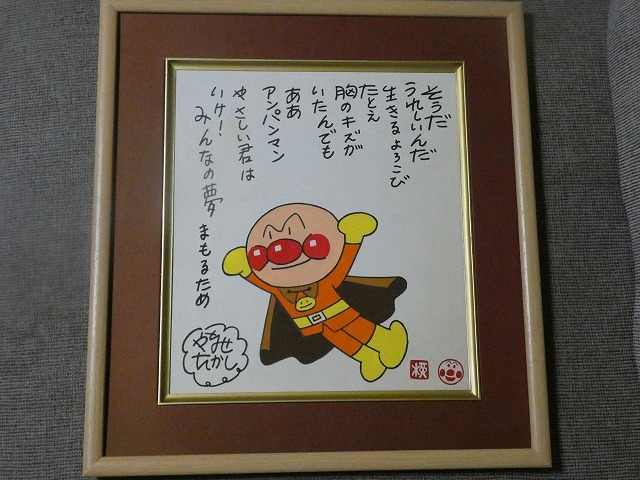 そうだ
うれしいんだ
生きるよろこび
たとえ
胸のキズが
いたんでも
ああ
アンパンマン
やさしい君は
いけ!
みんなの夢まもるため
やなせ
たかし